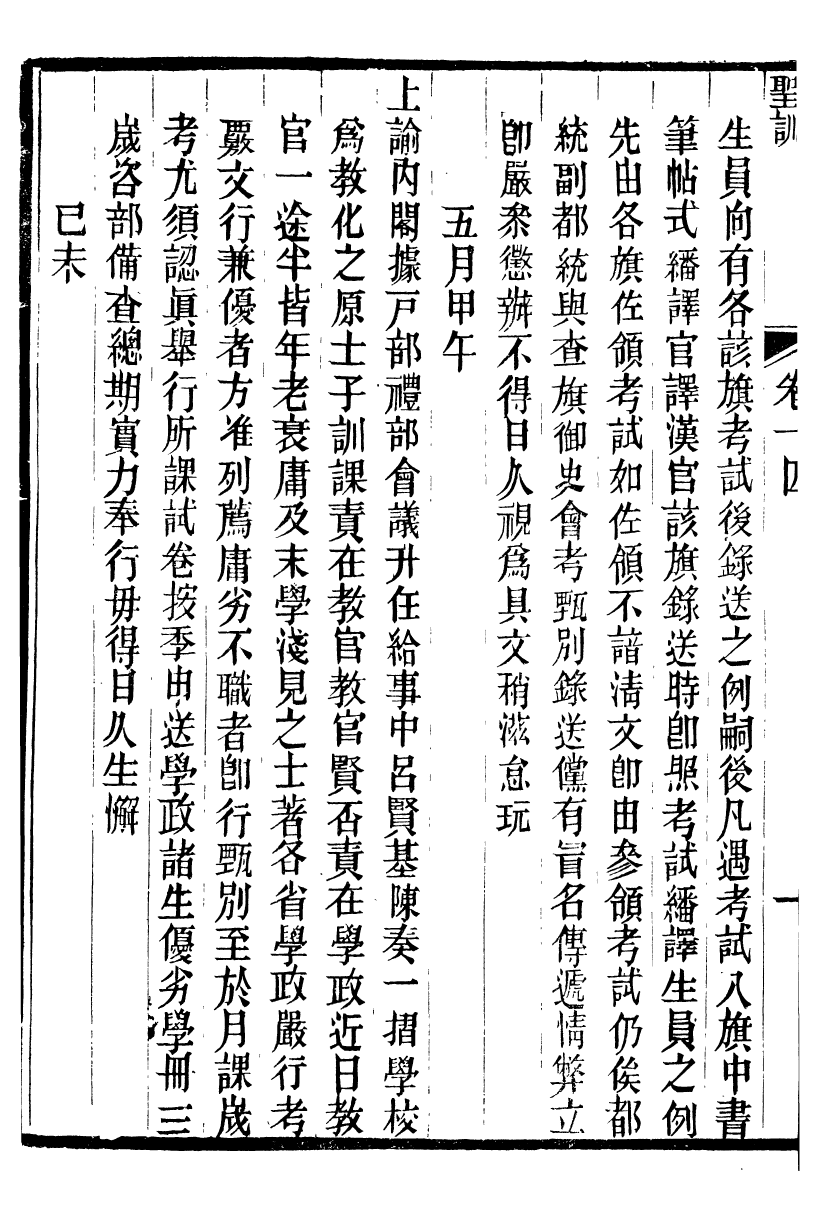 聖訓 卷一四 一
生員向有各該旗考試後錄送之例嗣後凡遇考試八旗中書
筆帖式繙譯官譯漢官該旗錄送時卽照考試繙譯生員之例
先由各旗佐領考試如佐領不諳清文卽由參領考試仍俟都
統副都統與查旗御史會考甄別錄送儻有冒名傳遞情弊立
卽嚴叅懲辦不得日久視爲具文稍滋怠玩
五月甲午
上諭內閣據戸部禮部會議升任給事中呂賢基陳奏一摺學校
爲教化之原士子訓課責在教官教官賢否責在學政近日教
官一途半皆年老衰庸及末學淺見之士著各省學政嚴行考
覈文行兼優者方准列薦庸劣不職者卽行甄別至於月課歲
考尤須認眞舉行所課試卷按季申送學政諸生優劣學冊三
歲咨部備查總期實力奉行毋得日久生懈
己未